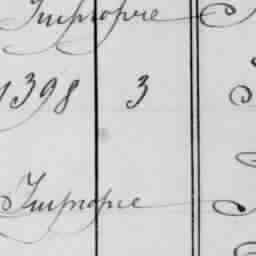 Impropre
1398 3
Impropre